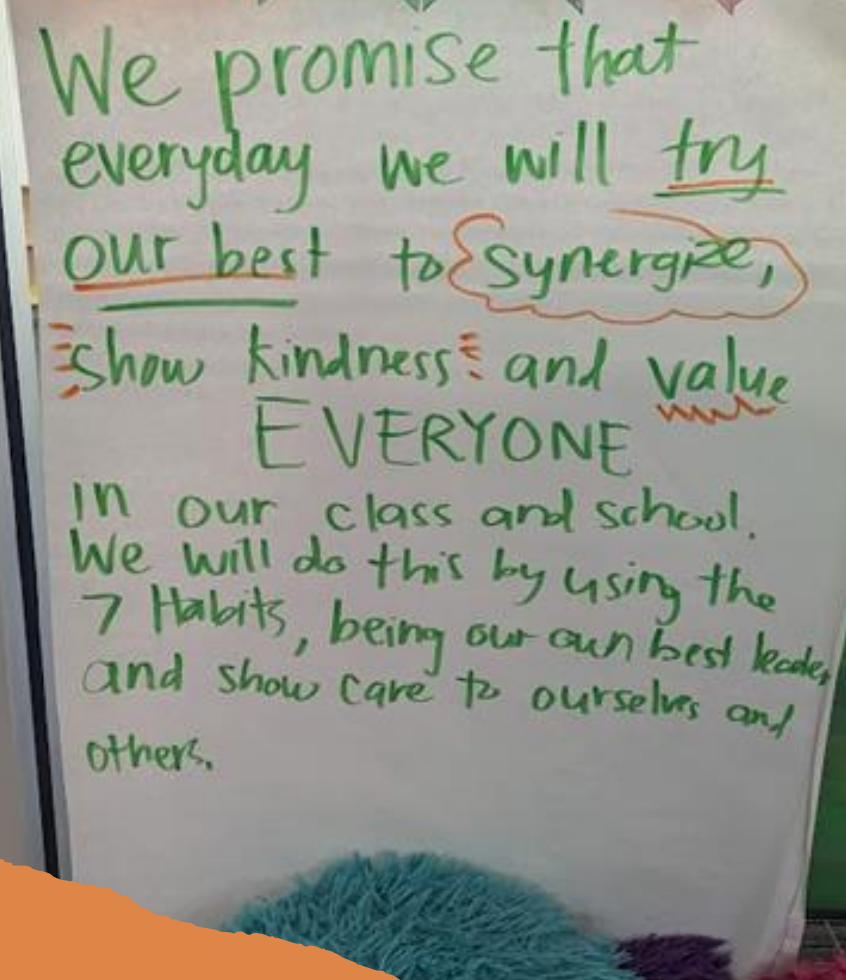 We promise that
everyday we will try
our best to synergize,
show kindness and value
EVERYONE
in our class and school.
We will do this by using the
7 Habits, being our own best leader,
and show care to ourselves and
others.